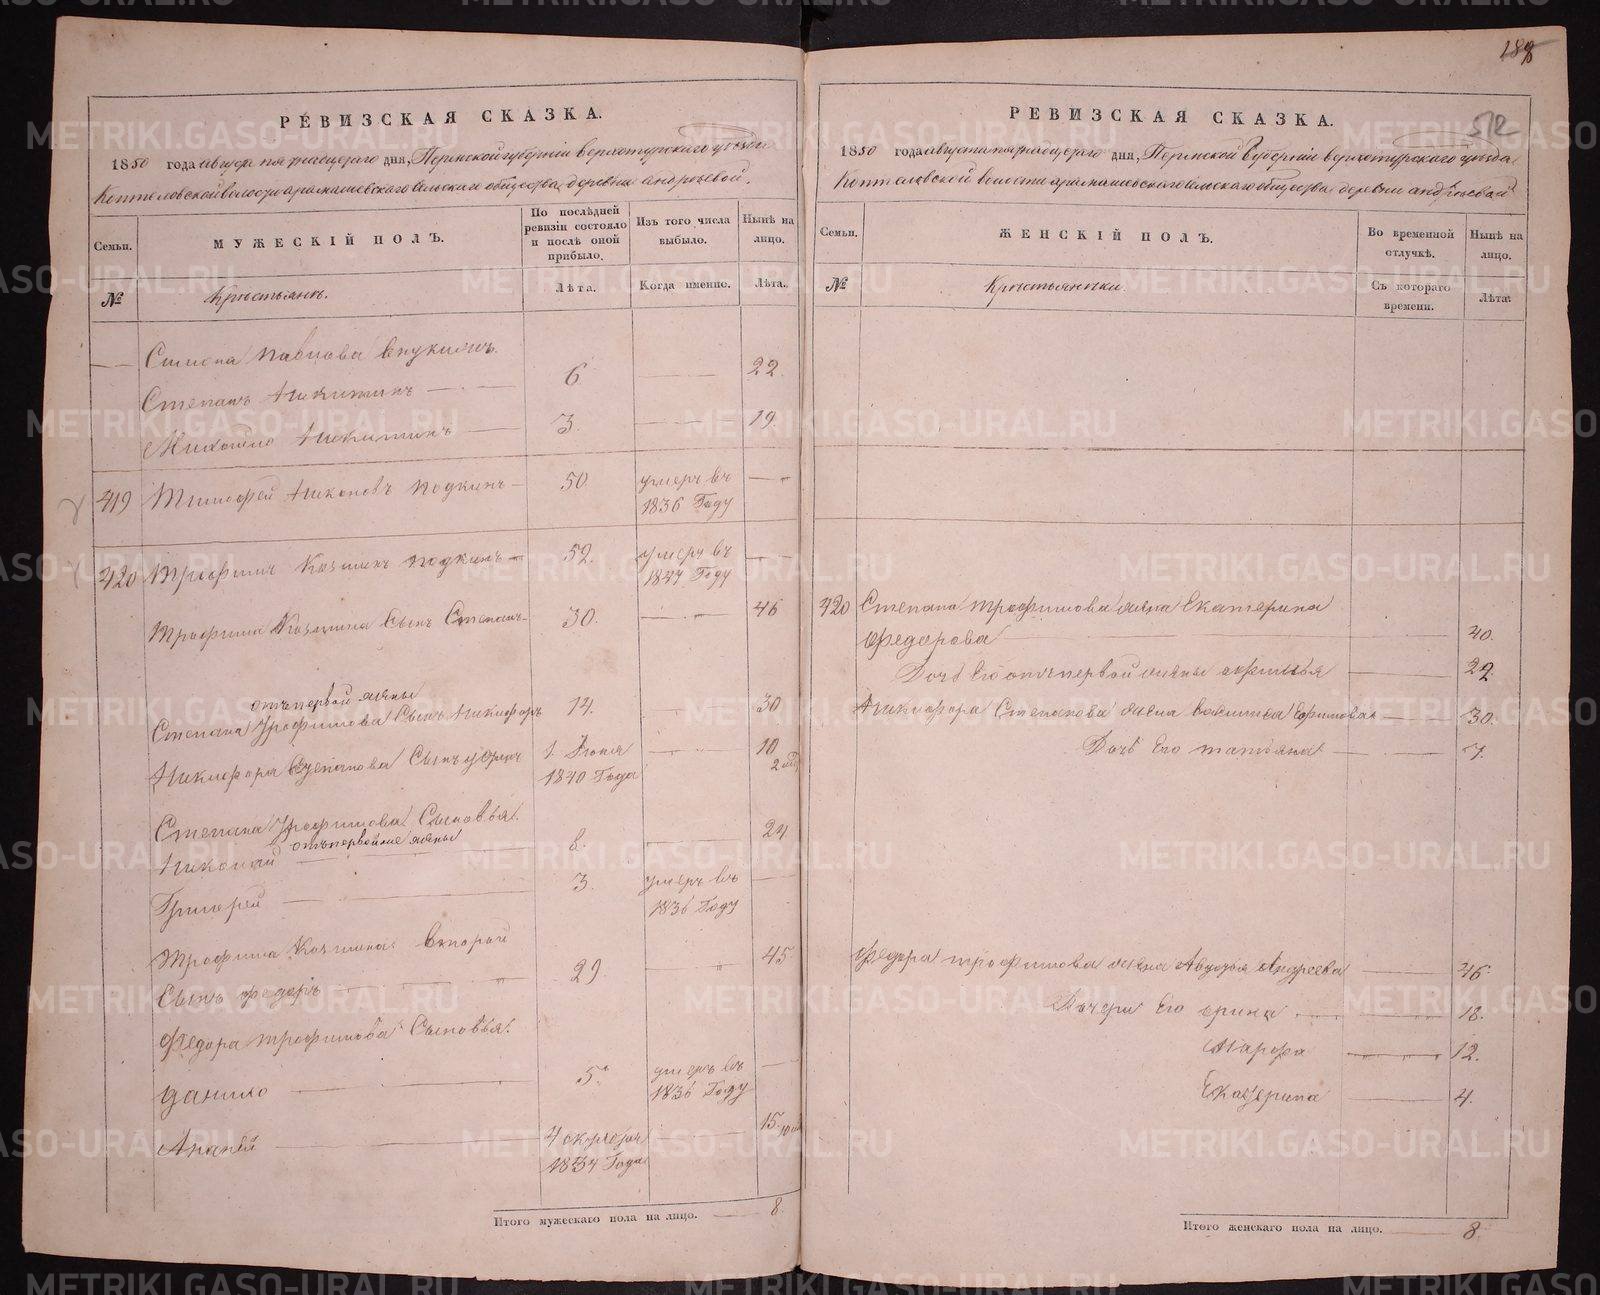 188
512
РЕВИЗСКАЯ СКАЗКА.
1850 года августа пятнадцатаго дня, Пермской губерніи верхотурскаго уѣзда
Коптеловской волости арамашевскаго сельскаго общества деревни андрѣевой.
Семьи.
МУЖЕСКІЙ ПОЛЪ.
По послѣдней ревизіи состояло и послѣ оной прибыло.
Изъ того числа выбыло.
Нынѣ на лицо.
№
Крестьянъ.
Лѣта.
Когда именно.
Лѣта.
Павлова внуки
Степанъ Никитинъ 6 22
Михайло Никитинъ 3. 19.
419 Тимофей Никоновъ подкинъ 50 умеръ въ
1836 Году
420 Трофимъ Козминъ подкинъ 52. умеръ въ
1847 Году
Трофима Козмина Сынъ Степанъ 30. 46
отъ первой жены
Степана Трофимова Сынъ Никифоръ 14. 30
Никифора Степанова Сынъ 1 Июня 10
1840 Года
Степана Трофимова Сыновья.
отъ первой же жены
Николай 8. 24
Григорей 3. умеръ въ
1836 Году
Трофима Козмина второй
Сынъ Федоръ 29 45
Федора трофимова Сыновья.
Данило 5 умеръ въ
1836 Году
Ананей 4 октября 15
1834 Года
Итого мужескаго пола на лицо. 8.
РЕВИЗСКАЯ СКАЗКА.
1850 года августа пятнадцатаго дня, Пермской Губерніи верхотурскаго уѣзда
Коптеловской волости арамашевскаго сельскаго общества деревни андрѣевой
Семьи.
ЖЕНСКІЙ ПОЛЪ.
Во временной отлучкѣ.
Нынѣ на лицо.
№
Крестьянки.
Съ котораго времени.
Лѣта.
420 Степана трофимова жена Екатерина
Федорова 40.
Дочь его отъ первой жены 22.
Никифора Степанова жена василиса Ефимова 30.
Дочь Его татьяна 7.
Федора трофимова жена Авдотья Андреева 46
Дочери Его ирина 18.
Марфа 12.
Екатерина 4.
Итого женскаго пола на лицо. 8.
METRIKI.GASO-URAL.RU